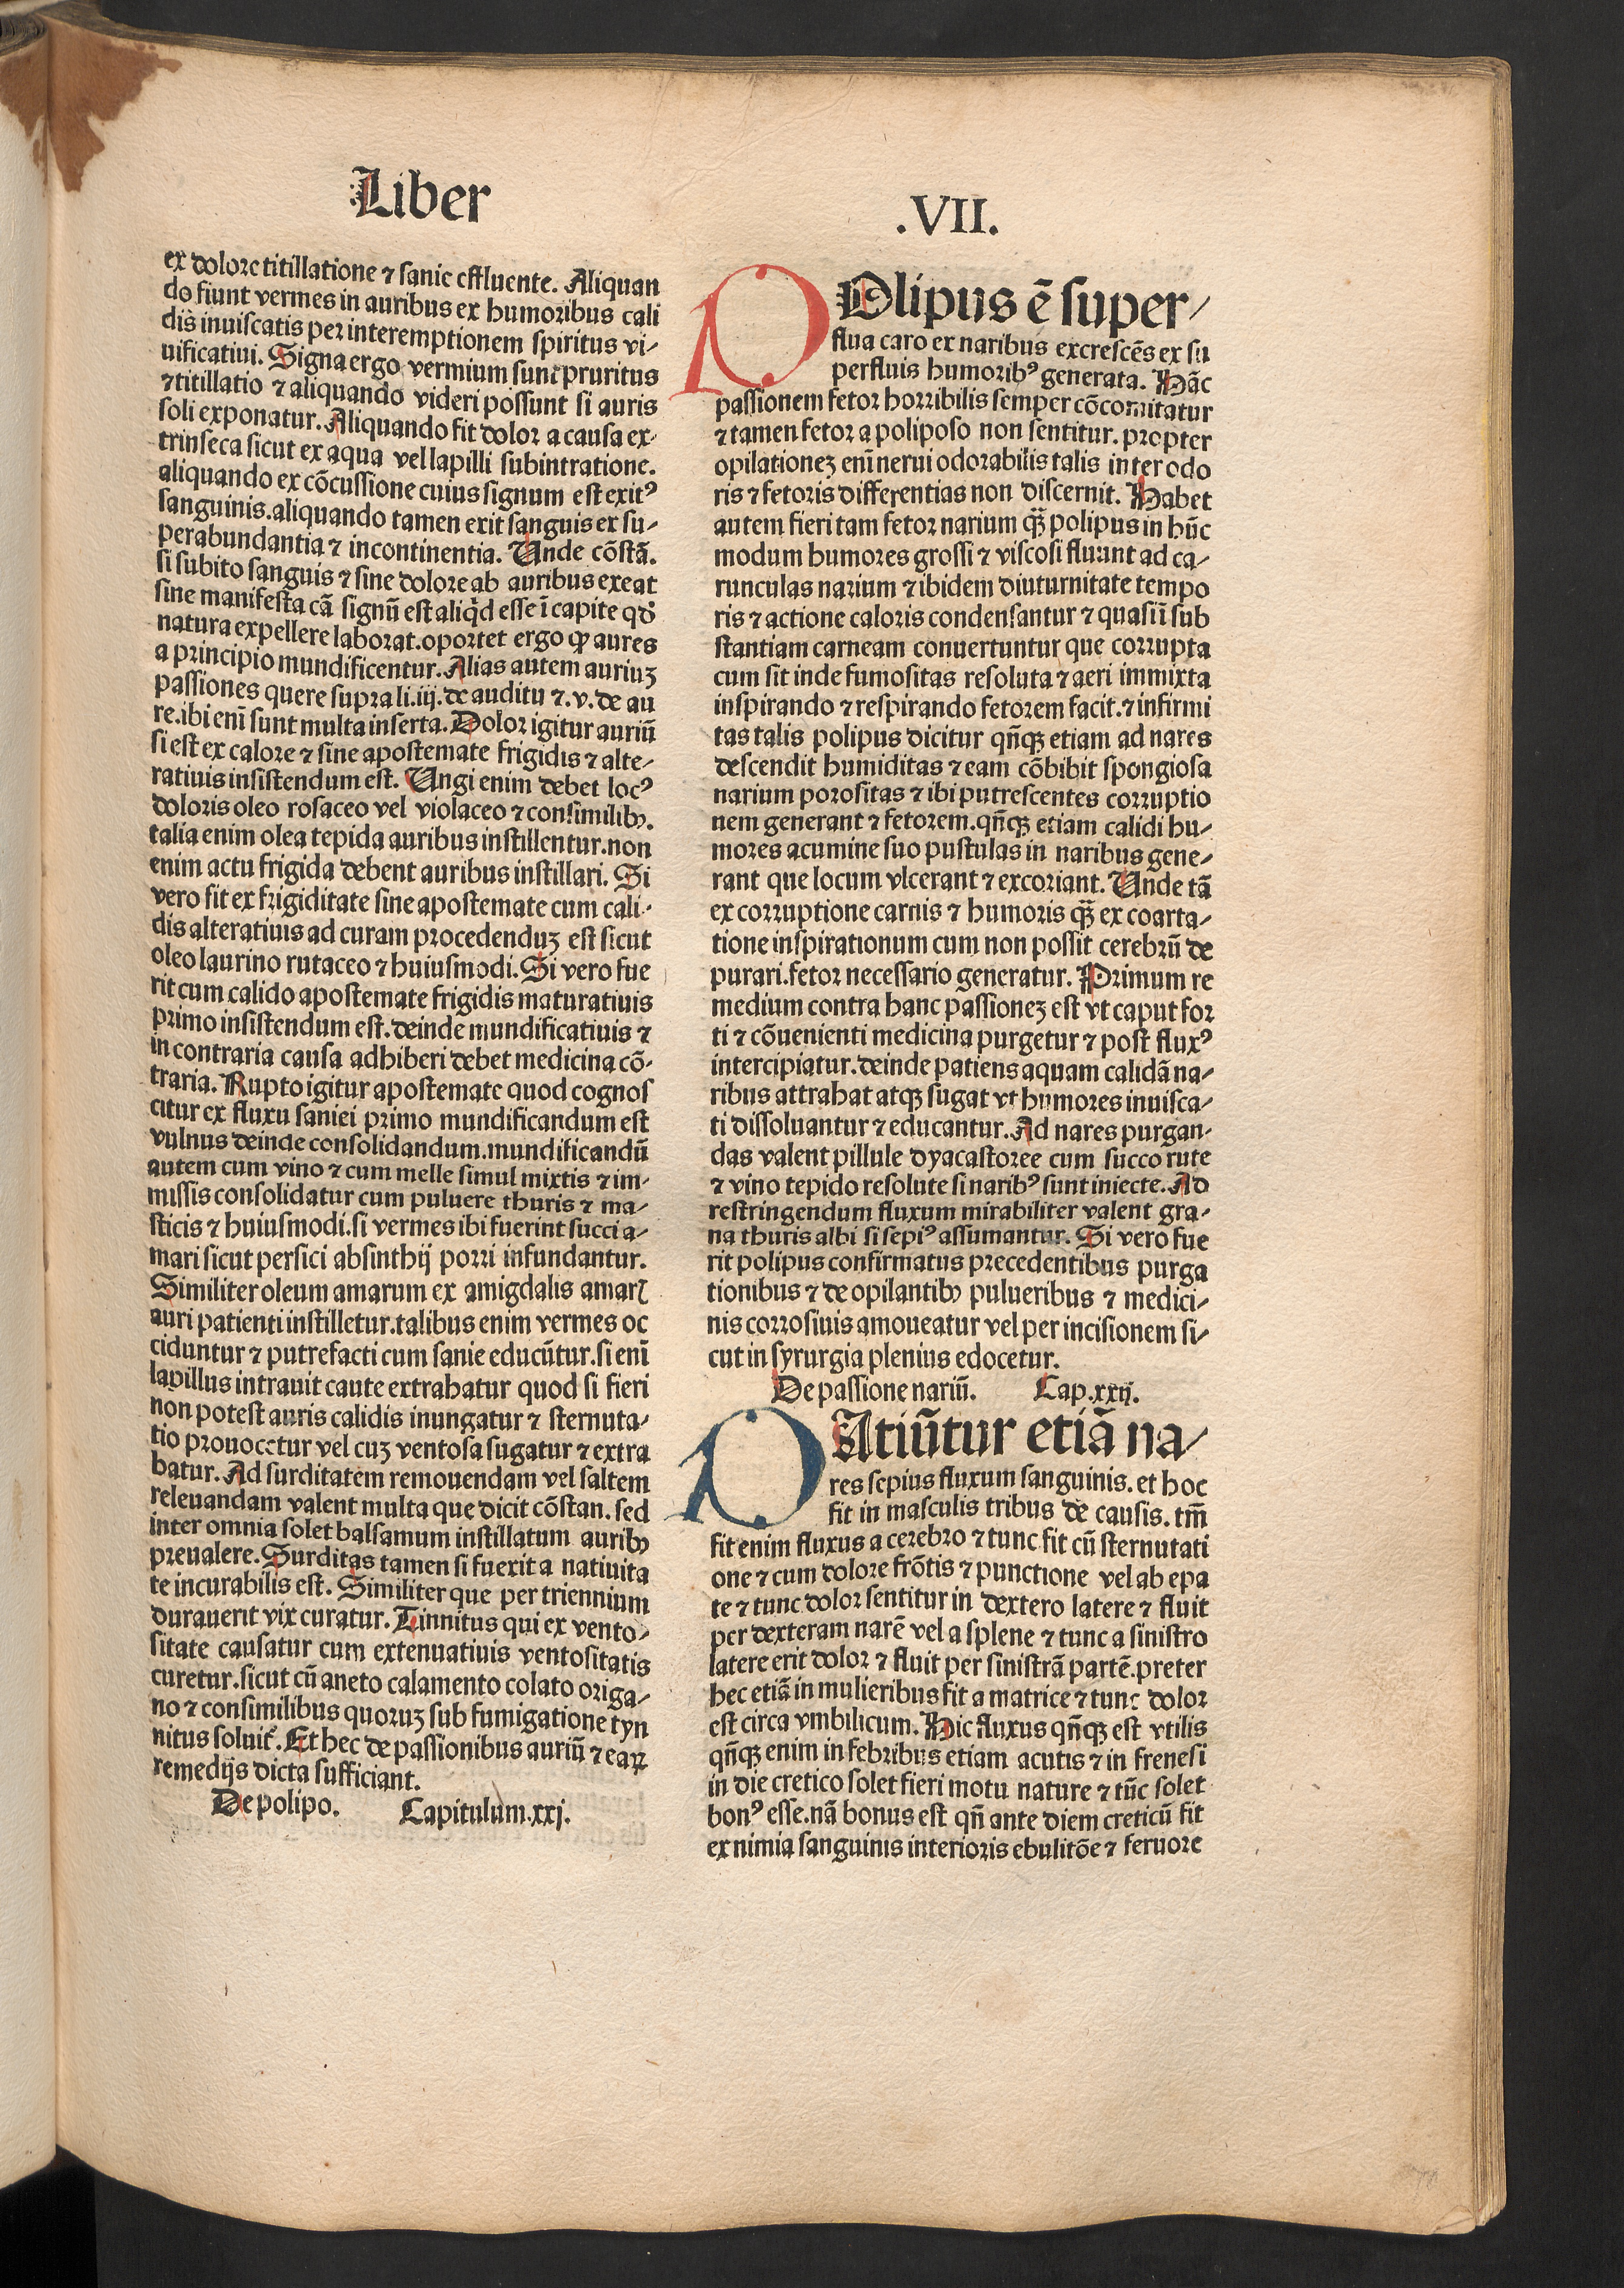 Liber
.VII.
ex dolore titillatione ⁊ sanie effluente. Aliquan
do fiunt vermes in auribus ex humoribus cali
dis inuiscatis per interemptionem spiritus vi-
uificatiui. Signa ergo vermium sunt pruritus
⁊ titillatio ⁊ aliquando videri possunt si auris
soli exponatur. Aliquando fit dolor a causa ex-
trinseca sicut ex aqua vel lapilli subintratione.
aliquando ex cōcussione cuius signum est exitꝰ
sanguinis. aliquando tamen exit sanguis ex su-
perabundantia ⁊ incontinentia. Unde cōstā.
si subito sanguis ⁊ sine dolore ab auribus exeat
sine manifesta cā signū est aliqd esse ī capite qd
natura expellere laborat. oportet ergo ꝙ aures
a principio mundificentur. Alias autem auriuꝫ
passiones quere supra li. iij. de auditu ⁊ .v. de au
re. ibi enī sunt multa inserta. Dolor igitur auriū
si est ex calore ⁊ sine apostemate frigidis ⁊ alte-
ratiuis insistendum est. Ungi enim debet locꝰ
doloris oleo rosaceo vel violaceo ⁊ consimilibꝫ.
talia enim olea tepida auribus instillentur. non
enim actu frigida debent auribus instillari. Si
vero fit ex frigiditate sine apostemate cum cali-
dis alteratiuis ad curam procedenduꝫ est sicut
oleo laurino rutaceo ⁊ huiusmodi. Si vero fue
rit cum calido apostemate frigidis maturatiuis
primo insistendum est. deinde mundificatiuis ⁊
in contraria causa adhiberi debet medicina cō-
traria. Rupto igitur apostemate quod cognos
citur ex fluxu saniei primo mundificandum est
vulnus deinde consolidandum. mundificandū
autem cum vino ⁊ cum melle simul mixtis ⁊ im-
missis consolidatur cum puluere thuris ⁊ ma-
sticis ⁊ huiusmodi. si vermes ibi fuerint succi a-
mari sicut persici absinthij porri infundantur.
Similiter oleum amarum ex amigdalis amarꝭ
auri patienti instilletur. talibus enim vermes oc
ciduntur ⁊ putrefacti cum sanie educūtur. si enī
lapillus intrauit caute extrahatur quod si fieri
non potest auris calidis inungatur ⁊ sternuta-
tio prouocetur vel cuꝫ ventosa sugatur ⁊ extra
hatur. Ad surditatem remouendam vel saltem
releuandam valent multa que dicit cōstan. sed
inter omnia solet balsamum instillatum auribꝫ
preualere. Surditas tamen si fuerit a natiuita
te incurabilis est. Similiter que per triennium
durauerit vix curatur. Tinnitus qui ex vento-
sitate causatur cum extenuatiuis ventositatis
curetur. sicut cū aneto calamento colato origa-
no ⁊ consimilibus quoruꝫ sub fumigatione tyn
nitus soluit᷑. Et hec de passionibus auriū ⁊ eaꝝ
remedijs dicta sufficiant.
De polipo. Capitulum .xxj.
POlipus ē super-
flua caro ex naribus excrescēs ex su
perfluis humoribꝰ generata. Hāc
passionem fetor horribilis semper cōcomitatur
⁊ tamen fetor a poliposo non sentitur. propter
opilationeꝫ enī nerui odorabilis talis inter odo
ris ⁊ fetoris differentias non discernit. Habet
autem fieri tam fetor narium qꝫ̄ polipus in hūc
modum humores grossi ⁊ viscosi fluunt ad ca-
runculas narium ⁊ ibidem diuturnitate tempo
ris ⁊ actione caloris condensantur ⁊ quasi ī sub
stantiam carneam conuertuntur que corrupta
cum sit inde fumositas resoluta ⁊ aeri immixta
inspirando ⁊ respirando fetorem facit. ⁊ infirmi
tas talis polipus dicitur qn̄qꝫ etiam ad nares
descendit humiditas ⁊ eam cōbibit spongiosa
narium porositas ⁊ ibi putrescentes corruptio
nem generant ⁊ fetorem. qn̄qꝫ etiam calidi hu-
mores acumine suo pustulas in naribus gene-
rant que locum vlcerant ⁊ excoriant. Unde tā
ex corruptione carnis ⁊ humoris qꝫ̄ ex coarta-
tione inspirationum cum non possit cerebrū de
purari. fetor necessario generatur. Primum re
medium contra hanc passioneꝫ est vt caput for
ti ⁊ cōuenienti medicina purgetur ⁊ post fluxꝰ
intercipiatur. deinde patiens aquam calidā na-
ribus attrahat atqꝫ sugat vt humores inuisca-
ti dissoluantur ⁊ educantur. Ad nares purgan-
das valent pillule dyacastoree cum succo rute
⁊ vino tepido resolute si naribꝰ sunt iniecte. Ad
restringendum fluxum mirabiliter valent gra-
na thuris albi si sepiꝰ assumantur. Si vero fue
rit polipus confirmatus precedentibus purga
tionibus ⁊ de opilantibꝫ pulueribus ⁊ medici-
nis corrosiuis amoueatur vel per incisionem si-
cut in syrurgia plenius edocetur.
De passione nariū. Cap. xxij.
PAtiūtur etiā na-
res sepius fluxum sanguinis. et hoc
fit in masculis tribus de causis. tm̄
fit enim fluxus a cerebro ⁊ tunc fit cū sternutati
one ⁊ cum dolore frōtis ⁊ punctione vel ab epa
te ⁊ tunc dolor sentitur in dextero latere ⁊ fluit
per dexteram narē vel a splene ⁊ tunc a sinistro
latere erit dolor ⁊ fluit per sinistrā partē. preter
hec etiā in mulieribus fit a matrice ⁊ tunc dolor
est circa vmbilicum. Hic fluxus qn̄qꝫ est vtilis
qn̄qꝫ enim in febribus etiam acutis ⁊ in frenesi
in die cretico solet fieri motu nature ⁊ tūc solet
bonꝰ esse. nā bonus est qn̄ ante diem creticū fit
ex nimia sanguinis interioris ebulitōe ⁊ feruore